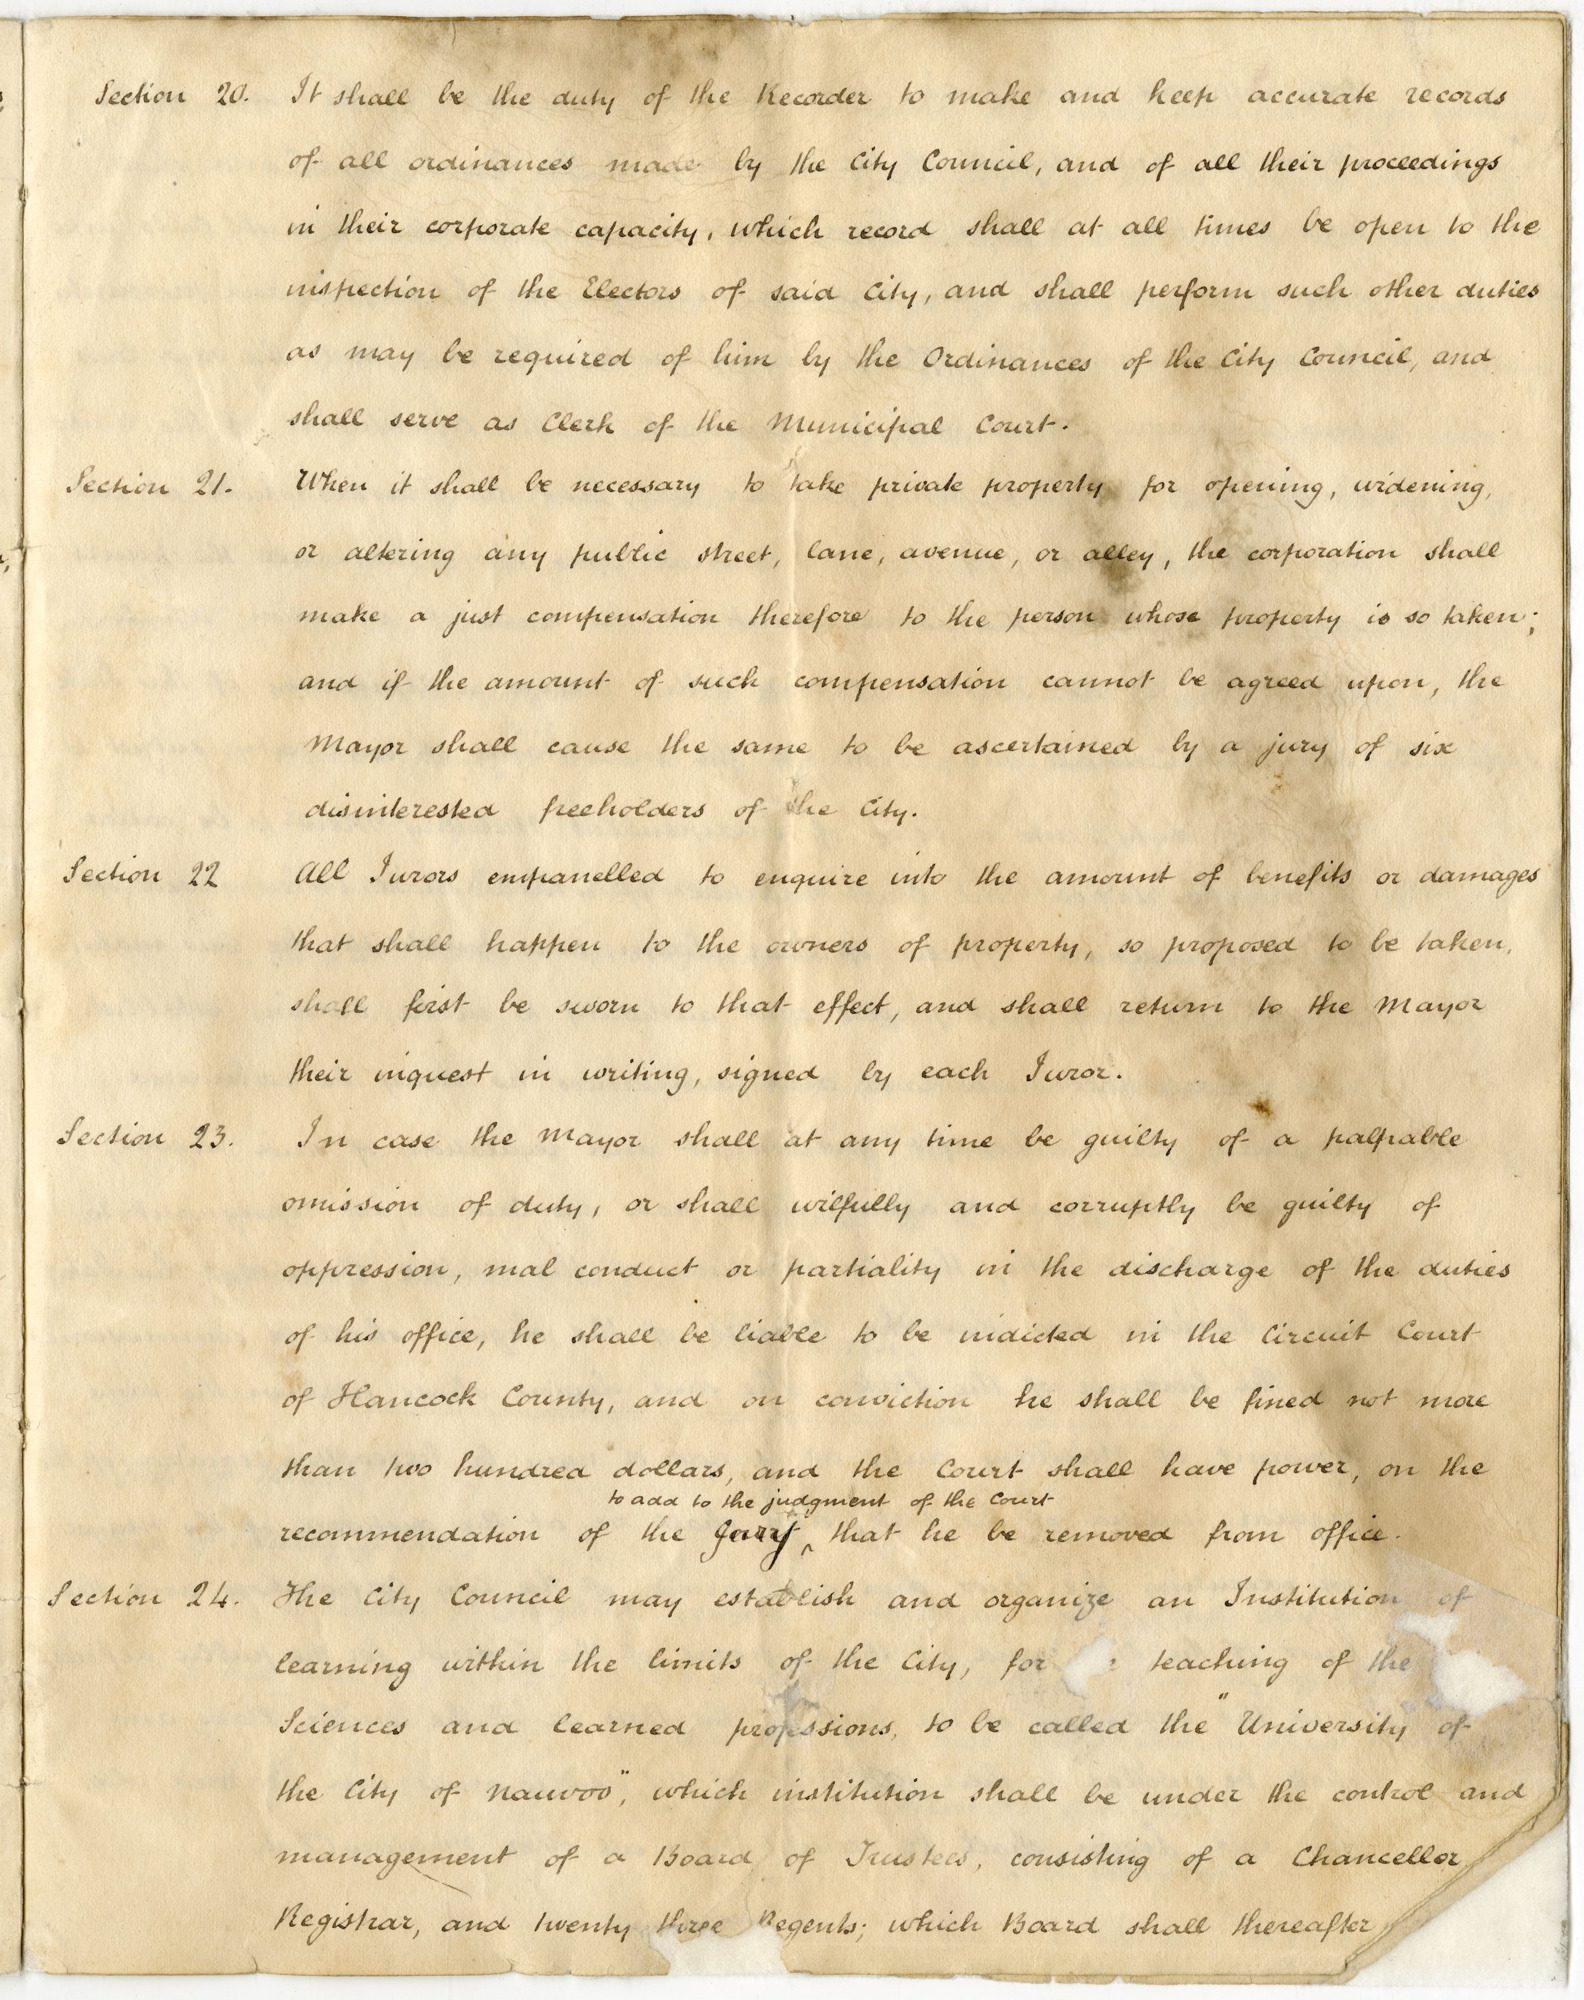 Section 20. It shall be the duty of the Recorder to make and keep accurate records
of all ordinances made by the City Council, and of all their proceedings
in their corporate capacity, which record shall at all times be open to the
inspection of the Electors of said City, and shall perform such other duties
as may be required of him by the Ordinances of the City Council, and
shall serve as Clerk of the Municipal Court.
Section 21. When it shall be necessary to take private property for opening, widening,
or altering any public street, lane, avenue, or alley, the corporation shall
make a just compensation therefore to the person whose property is so taken;
and if the amount of such compensation cannot be agreed upon, the
Mayor shall cause the same to be ascertained by a jury of six
disinterested freeholders of the City.
Section 22 All Jurors empanelled to enquire into the amount of benefits or damages
that shall happen to the owners of property, so proposed to be taken,
shall first be sworn to that effect, and shall return to the Mayor
their inquest in writing, signed by each Juror.
Section 23. In case the Mayor shall at any time be guilty of a palpable
omission of duty, or shall wilfully and corruptly be guilty of
oppression, mal conduct or partiality in the discharge of the duties
of his office, he shall be liable to be indicted in the Circuit Court
of Hancock County, and on conviction he shall be fined not more
than two hundred dollars, and the Court shall have power, on the
to add to the judgment of the Court
recommendation of the Jury ^ that he be removed from office.
Section 24. The City Council may establish and organize an Institution of
learning within the limits of the City, for teaching of the
Sciences and learned professions, to be called the "University of
the City of Nauvoo", which institution shall be under the control and
management of a Board of Trustees, consisting of a Chancellor
Registrar, and twenty three Regents; which Board shall thereafter